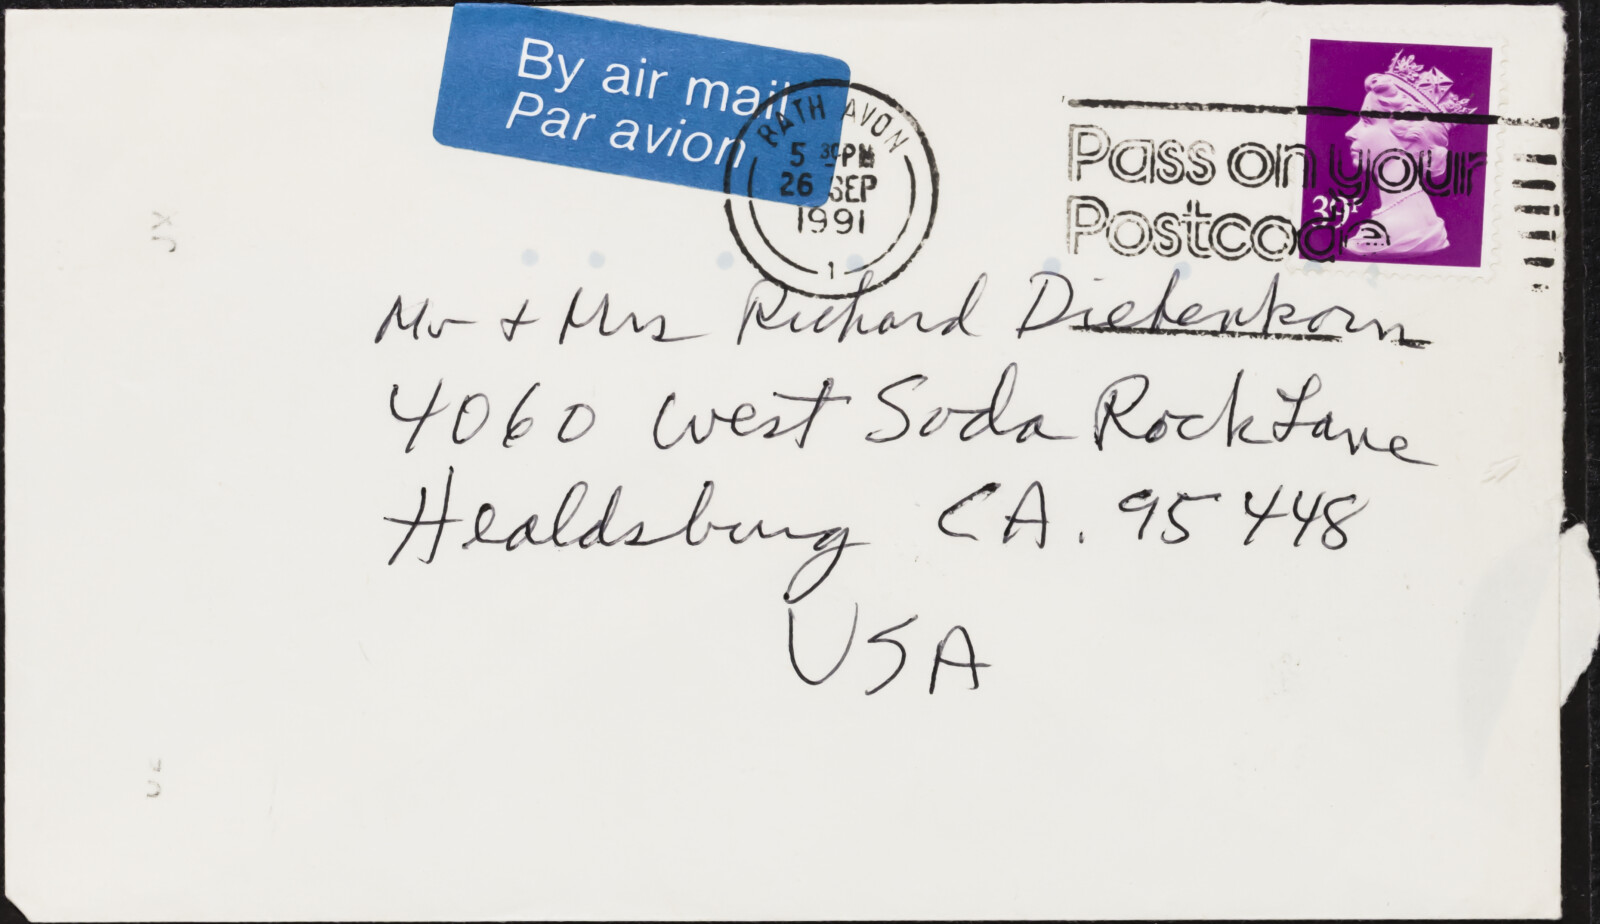 By air mail
Par avion
BATH AVON
5 30 PM
26 SEP
1991
1
Pass on your
Postcode
39P
Mr + Mrs Richard Diebenkorn
4060 West Soda Rock Lane
Healdsburg CA. 95448
USA